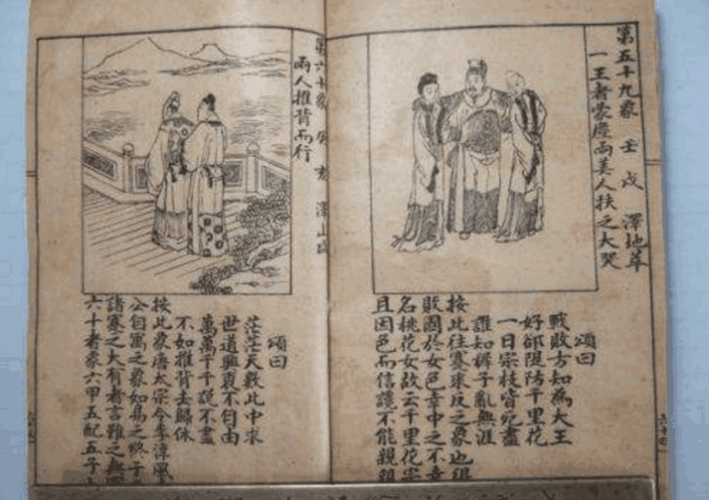 第五十九象 壬戌 澤地萃
一王者蒙塵兩美人扶之大哭
頌曰
戰敗方知為大王
好 隄防千里花
一日宗枝皆死盡
誰知稗子亂無涯
按此往蹇來反之象也
敗國於女色幸中之不幸
名桃花女故云千里花宗
且因色而信讒不能親親
第六十象 癸亥 澤山咸
兩人推背而行
頌曰
茫茫天數此中求
世道興衰不自由
萬萬千千說不盡
不如推背去歸休
按此象唐太宗令李淳風
公自寓之象如易之終于
諸蹇之大有者言雖之無
六十者象六甲五配五子